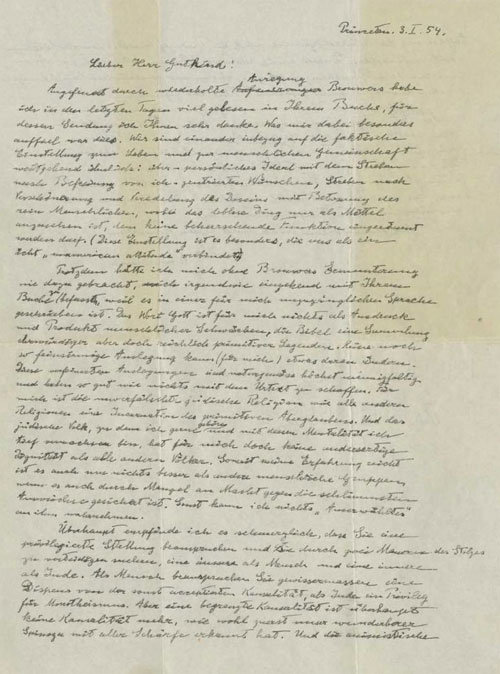 Princeton. 3. I. 54.
Lieber Herr Gutkind!
Angefeuert durch wiederholte Anregung Brouwers habe
ich in den letzten Tagen viel gelesen in Ihrem Buche, für
dessen Sendung ich Ihnen sehr danke. Was mir dabei besonders
auffiel war dies. Wir sind einander inbezug auf die faktische
Einstellung zum Leben und zur menschlichen Gemeinschaft
weitgehend ähnlich: über-persönliches Ideal mit dem Streben
nach Befreiung von ich-zentrierten Wünschen, Streben nach
Verschönerung und Veredelung des Daseins mit Betonung des
rein Menschlichen, wobei das leblose Ding nur als Mittel
anzusehen ist, dem keine beherrschende Funktion eingeräumt
werden darf. (Diese Einstellung ist es besonders, die uns als ein
echt "unamerican attitude" verbindet)
Trotzdem hätte ich mich ohne Brouwers Ermunterung
nie dazu gebracht, mich irgendwie eingehend mit Ihrem
Buche befasst, weil es in einer für mich unzugänglichen Sprache
geschrieben ist. Das Wort Gott ist für mich nichts als Ausdruck
und Produkt menschlicher Schwächen, die Bibel eine Sammlung
ehrwürdiger aber doch reichlich primitiver Legenden. Keine noch
so feinsinnige Auslegung kann (für mich) etwas daran ändern.
Diese verfeinerten Auslegungen sind naturgemäss höchst mannigfaltig
und haben so gut wie nichts mit dem Urtext zu schaffen. Für
mich ist die unverfälschte jüdische Religion wie alle anderen
Religionen eine Incarnation des primitiven Aberglaubens. Und das
jüdische Volk, zu dem ich gerne gehöre und mit dessen Mentalität ich
tief verwachsen bin, hat für mich doch keine andersartige
Dignität als alle anderen Völker. Soweit meine Erfahrung reicht
ist es auch um nichts besser als andere menschliche Gruppen,
wenn es auch durch Mangel an Macht gegen die schlimmsten
Auswüchse gesichert ist. Sonst kann ich nichts "Auserwähltes"
an ihm wahrnehmen.
Überhaupt empfinde ich es schmerzlich, dass Sie eine
privilegierte Stellung beanspruchen und sie durch zwei Mauern des Stolzes
zu verteidigen suchen, eine äussere als Mensch und eine innere
als Jude. Als Mensch beanspruchen Sie gewissermassen einen
Dispens von der sonst acceptierten Kausalität, als Jude ein Privileg
für Monotheismus. Aber eine begrenzte Kausalität ist überhaupt
keine Kausalität mehr, wie wohl zuerst unser wunderbarer
Spinoza mit aller Schärfe erkannt hat. Und die animistische